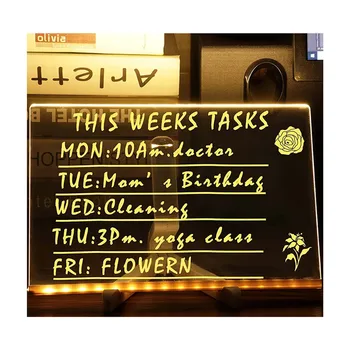 olivia
Arlett
THIS WEEKS TASKS
MON:10Am.doctor
TUE:Mom's Birthday
WED:Cleaning
THU:3Pm. yoga class
FRI: FLOWERN